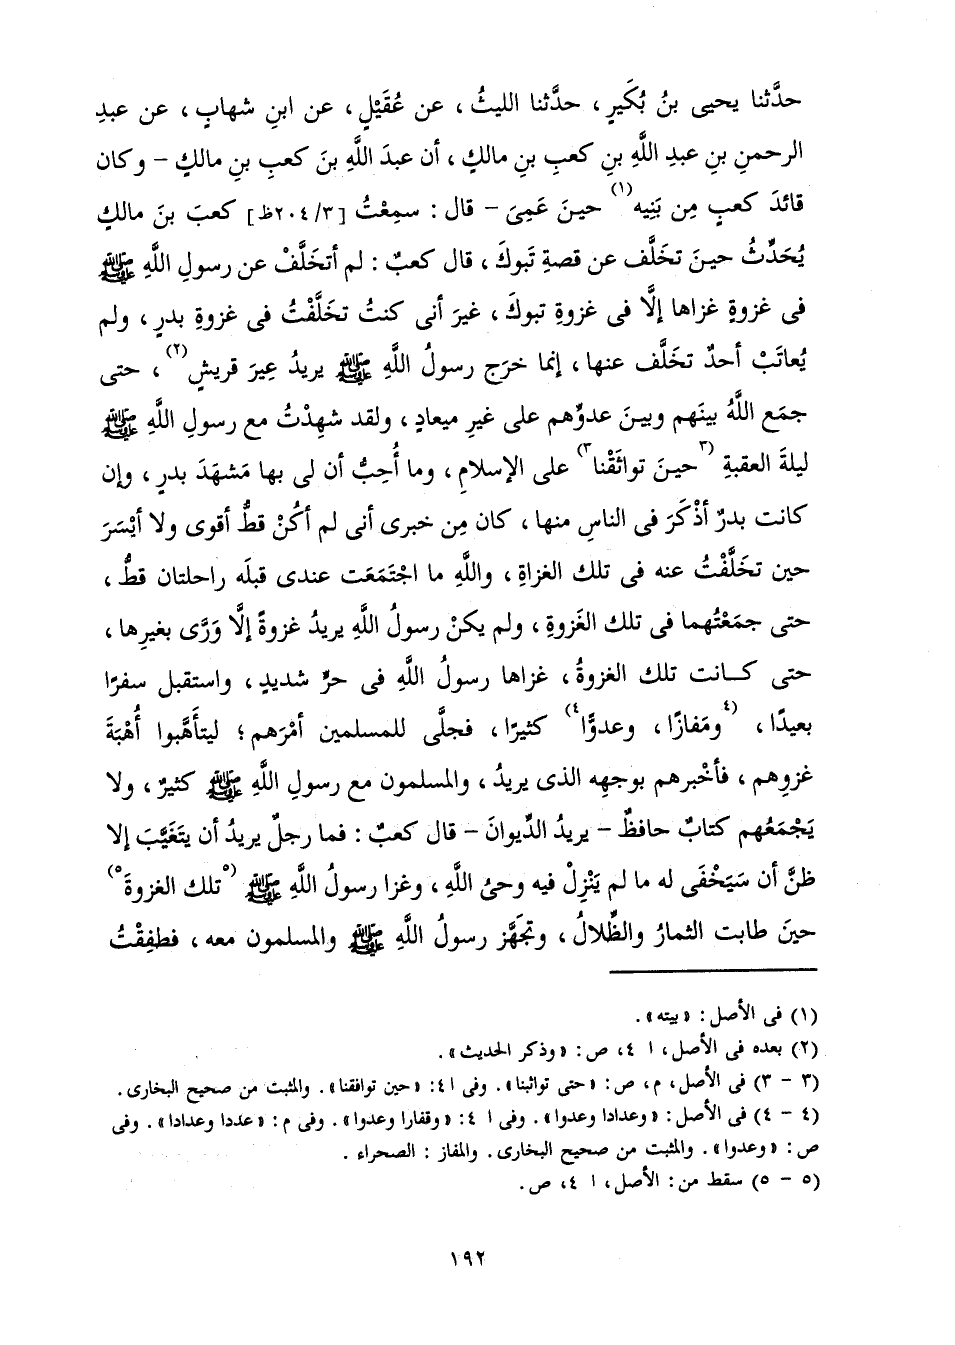 حدَّثنا يحيى بنُ بُكَيرٍ، حدَّثنا الليثُ، عن عُقَيْلٍ، عن ابنِ شهابٍ، عن عبدِ
الرحمنِ بنِ عبدِ اللَّهِ بنِ كعبِ بنِ مالكٍ، أن عبدَ اللَّهِ بنَ كعبِ بنِ مالكٍ - وكان
قائدَ كعبٍ مِن بَنِيه(١) حينَ عَمِىَ - قال: سمِعْتُ [٢٠٤/٣ظ] كعبَ بنَ مالكٍ
يُحَدِّثُ حينَ تخَلَّف عن قصةِ تَبوكَ، قال كعبٌ: لم أتخَلَّفْ عن رسولِ اللَّهِ ﷺ
فى غزوةٍ غزاها إلَّا فى غزوةِ تبوكَ، غيرَ أنى كنتُ تخَلَّفْتُ فى غزوةِ بدرٍ، ولم
يُعاتَبْ أحدٌ تخَلَّف عنها، إنما خرَج رسولُ اللَّهِ ﷺ يريدُ عِيرَ قريشٍ(٢)، حتى
جمَع اللَّهُ بينَهم وبينَ عدوِّهم على غيرِ ميعادٍ، ولقد شهِدْتُ مع رسولِ اللَّهِ ﷺ
ليلةَ العقبةِ (٣حينَ تواثَقْنا٣) على الإسلامِ، وما أُحِبُّ أن لى بها مَشهَدَ بدرٍ، وإن
كانت بدرٌ أذْكَرَ فى الناسِ منها، كان مِن خبرى أنى لم أكُنْ قطُّ أقوى ولا أيْسَرَ
حين تخَلَّفْتُ عنه فى تلك الغزاةِ، واللَّهِ ما اجْتمَعَت عندى قبلَه راحلتان قطُّ،
حتى جمَعْتُهما فى تلك الغَزوةِ، ولم يكنْ رسولُ اللَّهِ يريدُ غزوةً إلَّا وَرَّى بغيرِها،
حتى كــانت تلك الغزوةُ، غزاها رسولُ اللَّهِ فى حرٍّ شديدٍ، واستقبل سفرًا
بعيدًا، (٤ومَفازًا، وعدوًّا٤) كثيرًا، فجلَّى للمسلمين أمْرَهم؛ ليتأَهَّبوا أُهْبَةَ
غزوِهم، فأخْبرهم بوجهِه الذى يريدُ، والمسلمون مع رسولِ اللَّهِ ﷺ كثيرٌ، ولا
يَجْمَعُهم كتابٌ حافظٌ - يريدُ الدِّيوانَ - قال كعبٌ: فما رجلٌ يريدُ أن يتَغَيَّبَ إلا
ظنَّ أن سَيَخْفَى له ما لم يَنْزِلْ فيه وحىُ اللَّهِ، وغزا رسولُ اللَّهِ ﷺ (٥تلك الغزوةَ٥)
حينَ طابت الثمارُ والظِّلالُ، وتجَهَّز رسولُ اللَّهِ ﷺ والمسلمون معه، فطفِقْتُ
(١) فى الأصل: «بيته».
(٢) بعده فى الأصل، ا ٤، ص: «وذكر الحديث».
(٣ - ٣) فى الأصل، م، ص: «حتى تواثبنا». وفى ا٤: «حين توافقنا». والمثبت من صحيح البخارى.
(٤ - ٤) فى الأصل: «وعدادا وعدوا». وفى ا ٤: «وقفارا وعدوا». وفى م: «عددا وعدادا». وفى
ص: «وعدوا». والمثبت من صحيح البخارى. والمفاز: الصحراء.
(٥ - ٥) سقط من: الأصل، ا ٤، ص.
١٩٢